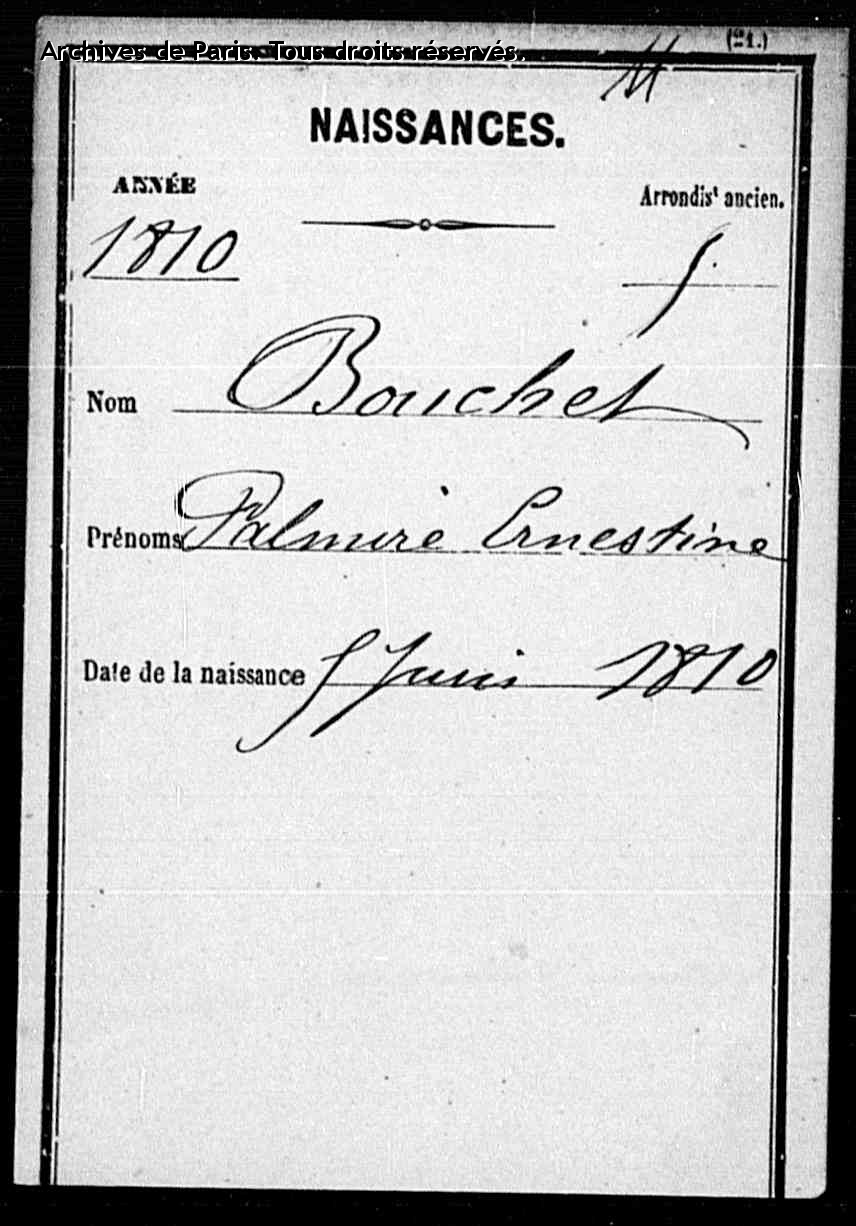 Archives de Paris. Tous droits réservés.
NAISSANCES.
ANNÉE
Arrondist ancien.
1810
5
Nom Bouchet
Prénoms Palmire Ernestine
Date de la naissance 5 Juin 1810